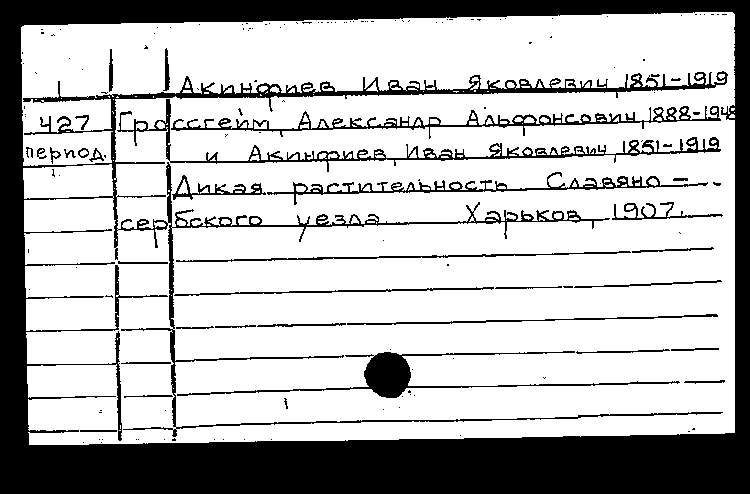 Акинфиев, Иван Яковлевич, 1851-1919
427 Гроссгейм, Александр Альфонсович, 1888-1948
период. и Акинфиев, Иван Яковлевич, 1851-1919
Дикая растительность Славяно-
сербского уезда Харьков, 1907.